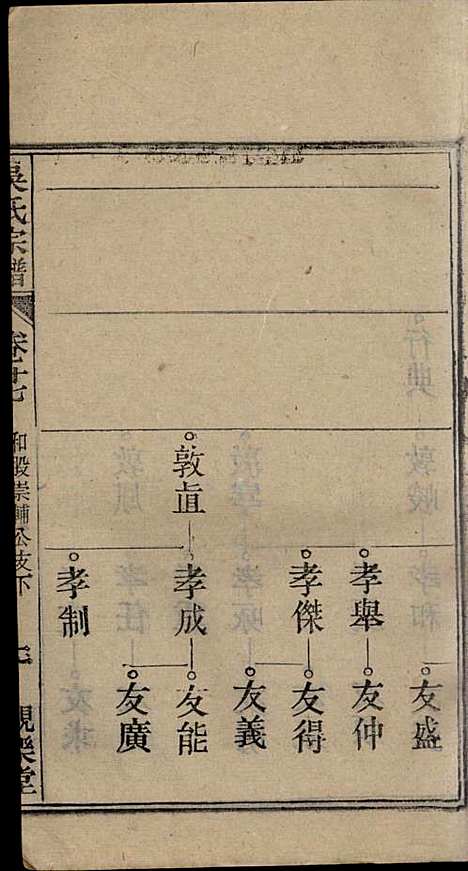 友盛
孝舉 友仲
孝傑 友得
友義
敦直 孝成 友能
友廣
孝制
吳氏宗譜 卷十七 和股崇輔公支下 親樂堂